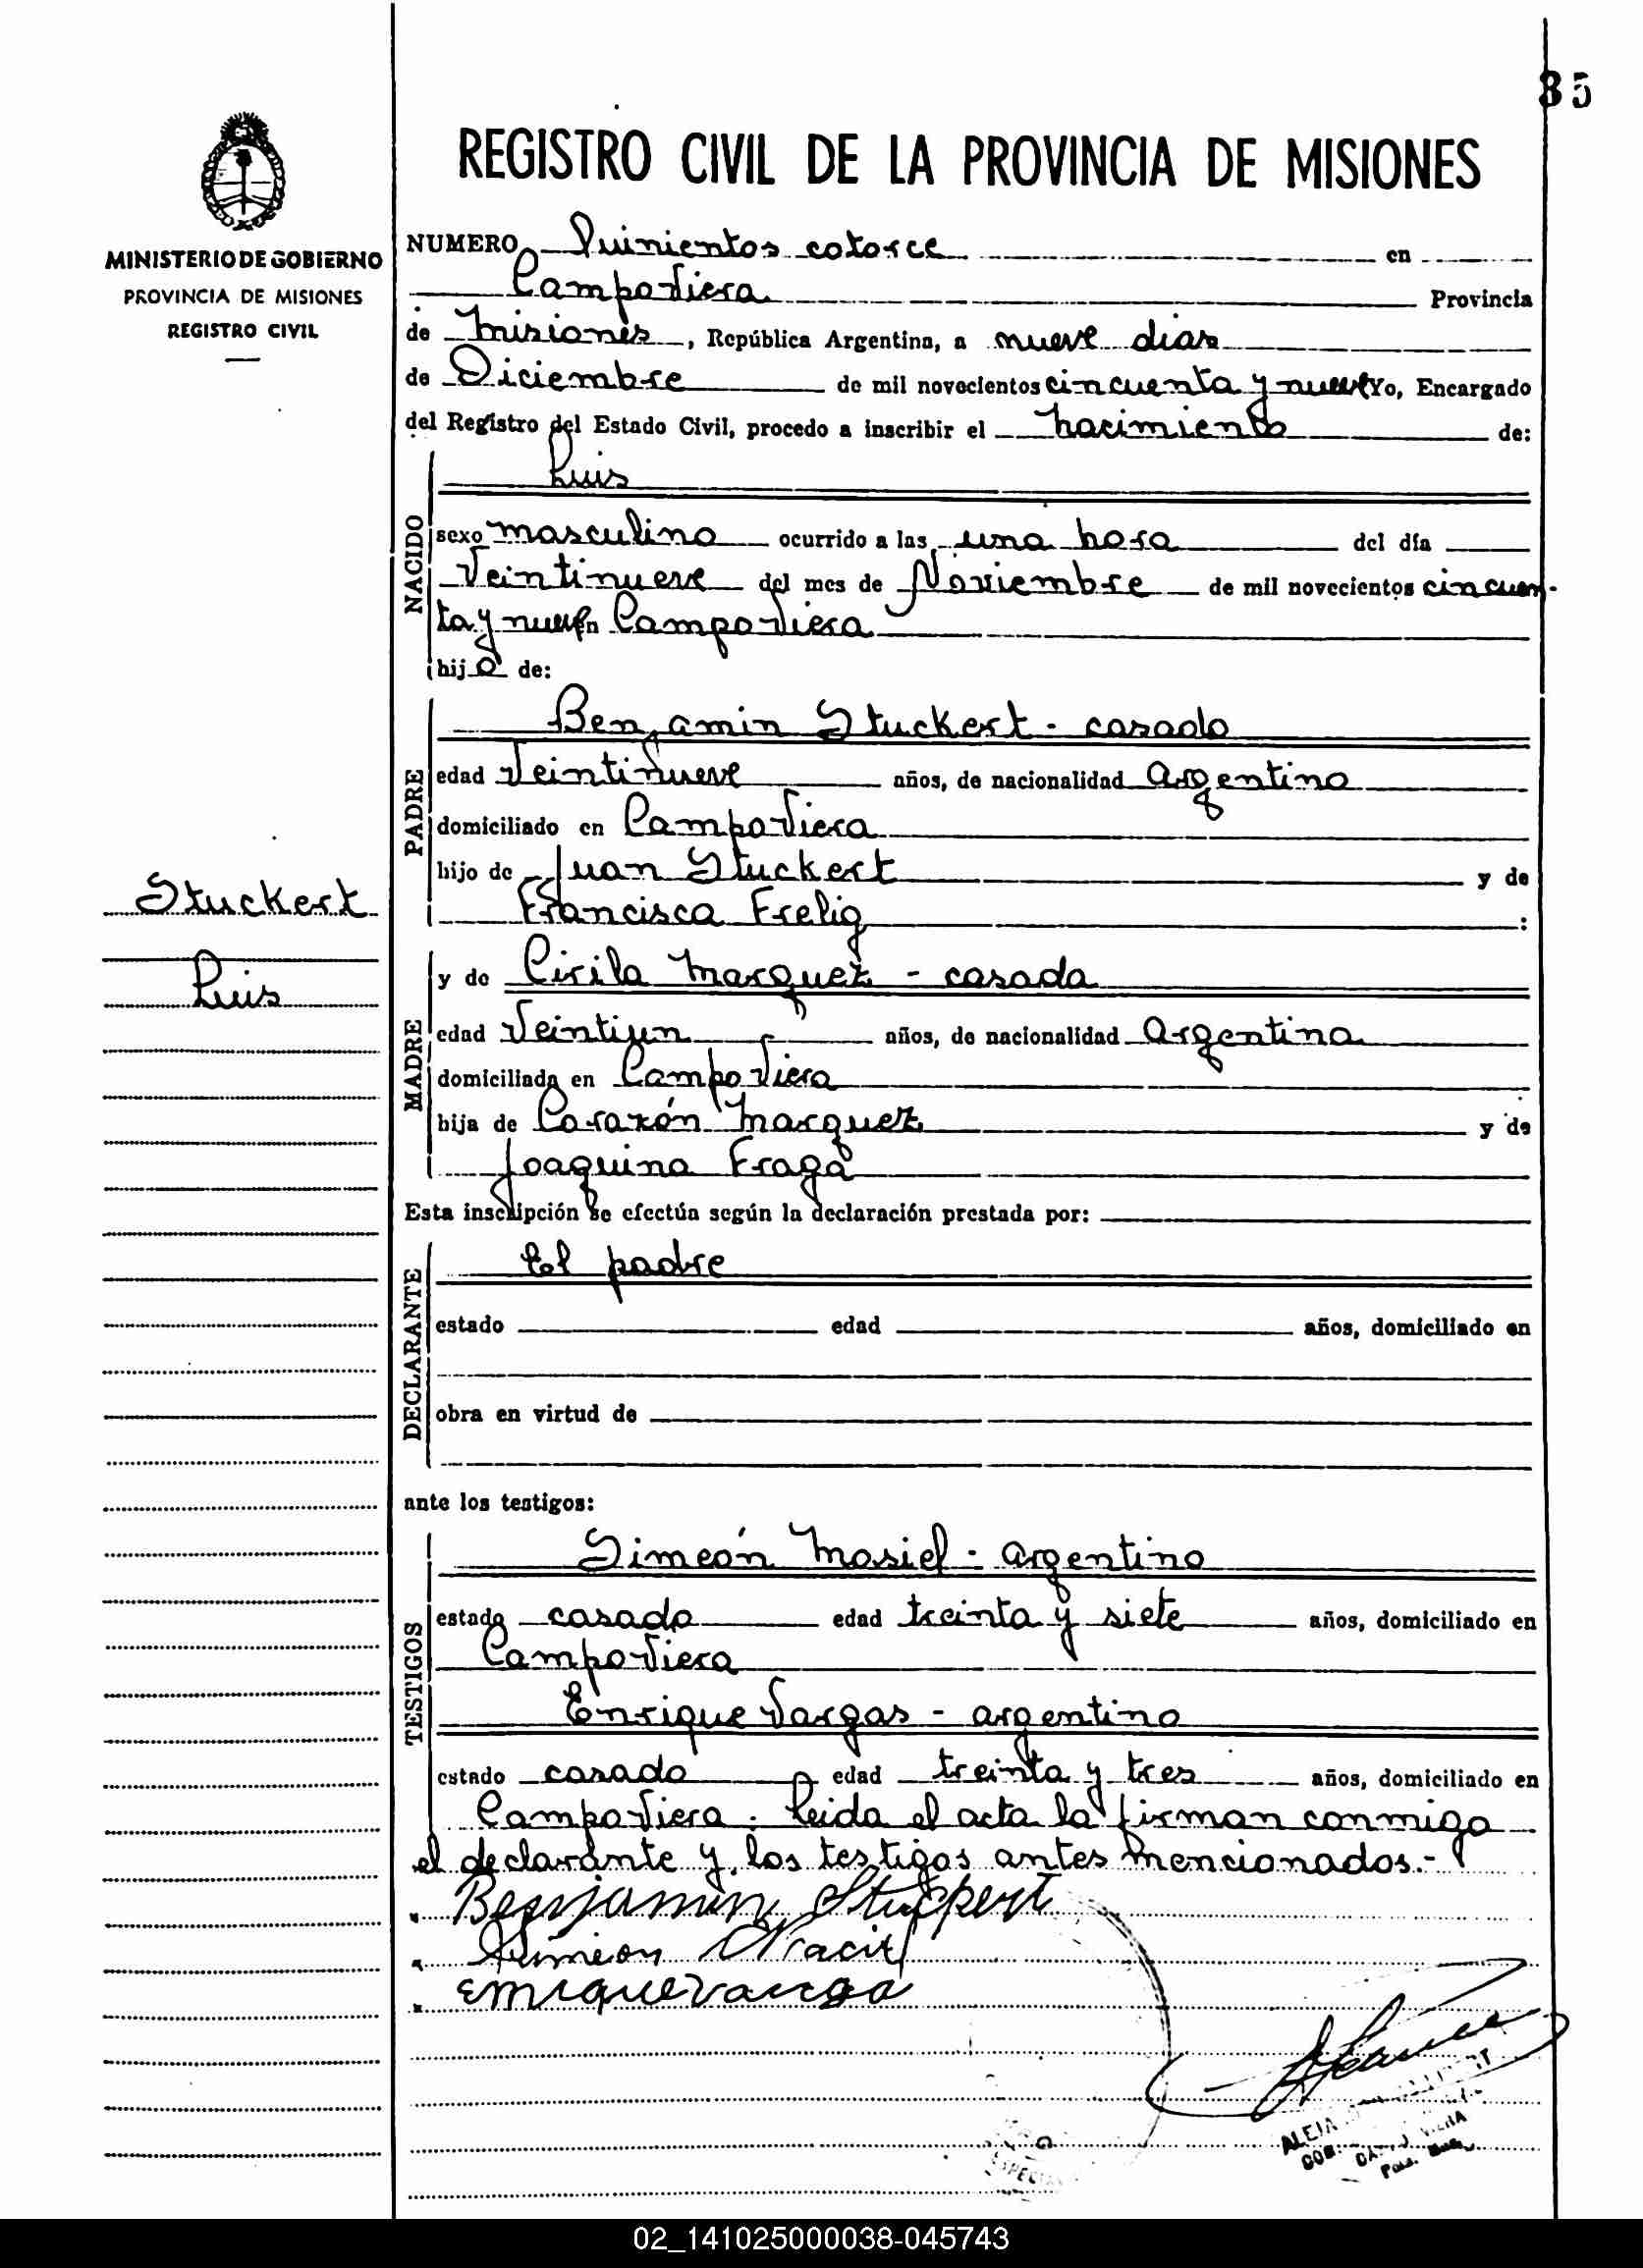 85
REGISTRO CIVIL DE LA PROVINCIA DE MISIONES
MINISTERIO DE GOBIERNO
PROVINCIA DE MISIONES
REGISTRO CIVIL
NUMERO Quinientos catorce en
Campo Viera Provincia
de Misiones, República Argentina, a nueve dias
de Diciembre de mil novecientos cincuenta y nueve Yo, Encargado
del Registro del Estado Civil, procedo a inscribir el nacimiento de:
NACIDO
Luis
sexo masculino ocurrido a las una hora del día
Veintinueve del mes de Noviembre de mil novecientos cincuen-
ta y nueve en Campo Viera
hijo de:
PADRE
Benjamin Stuckert - casado
edad Veintinueve años, de nacionalidad Argentino
domiciliado en Campo Viera
hijo de Juan Stuckert y de
Francisca Frelig :
Stuckert
Luis
MADRE
y de Cirila Marquez - casada
edad Veintiun años, de nacionalidad Argentina
domiciliada en Campo Viera
hija de Corazón Marquez y de
Joaquina Fraga
Esta inscripción se efectúa según la declaración prestada por:
DECLARANTE
El padre
estado edad años, domiciliado en
obra en virtud de
ante los testigos:
TESTIGOS
Simeón Masiel - argentino
estado casado edad treinta y siete años, domiciliado en
Campo Viera
Enrique Vargas - argentino
estado casado edad treinta y tres años, domiciliado en
Campo Viera. Leida el acta la firman conmigo
el declarante y los testigos antes mencionados.-
Benjamin Stuckert
Simeon Macil
Enrique Varga
02_141025000038-045743